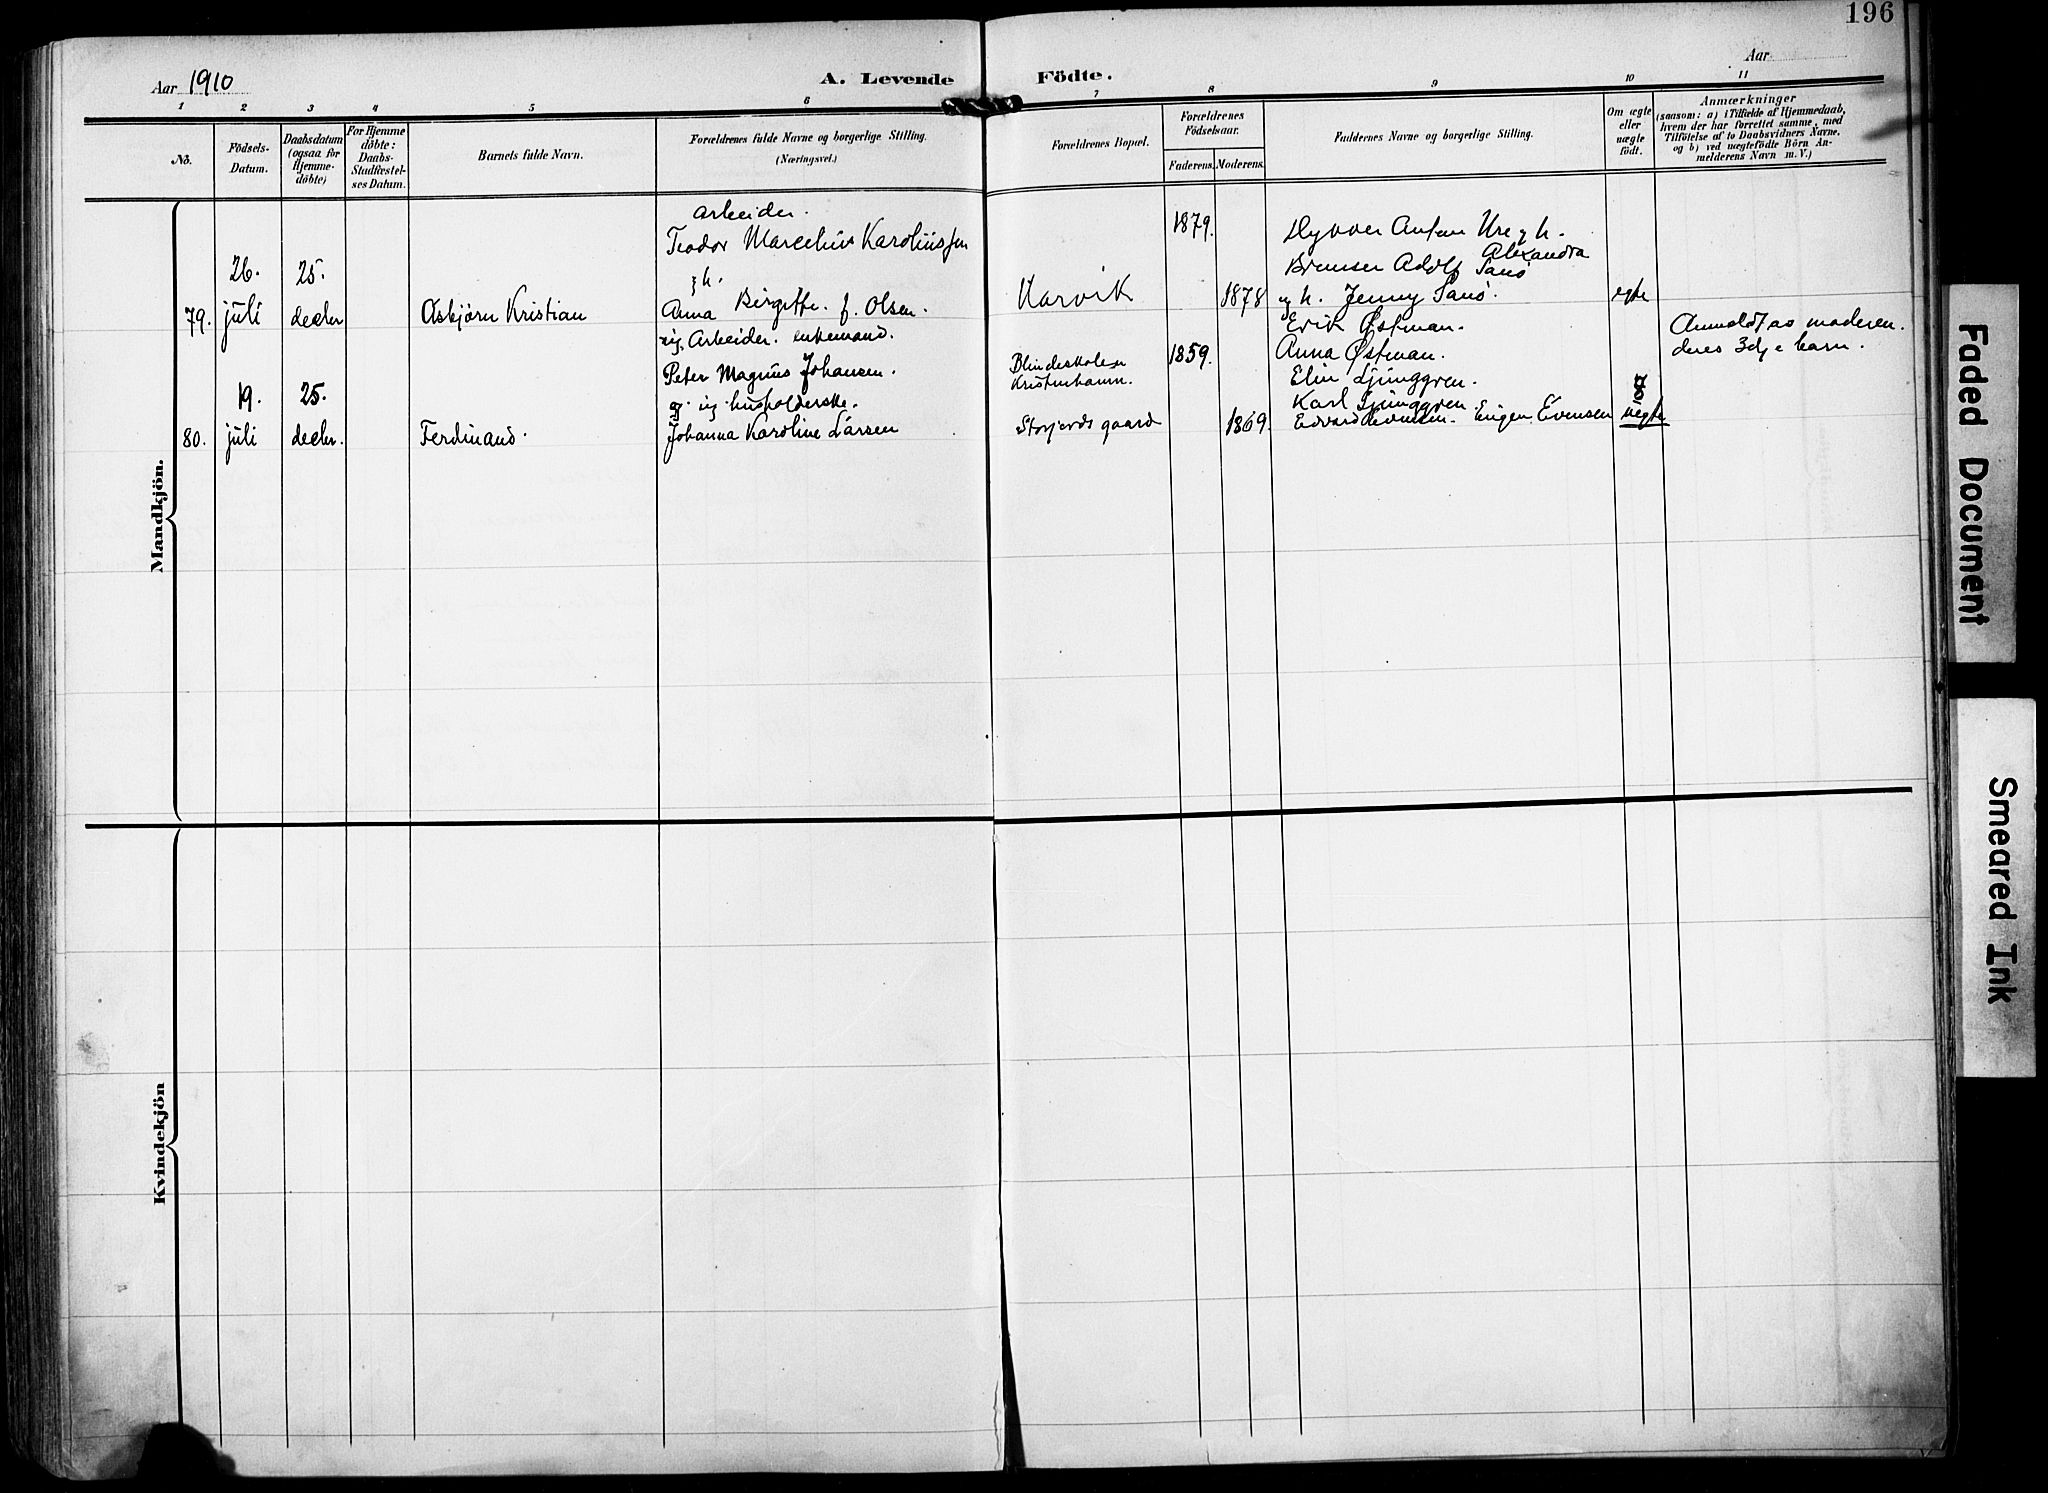 196
Aar 1910
A. Levende Födte.
Aar
1 2 3 4 5 6 7 8 9 10 11
No.
Födsels-
Datum.
Daabsdatum
(ogsaa for
Hjemme-
döbte)
For Hjemme
döbte:
Daabs-
Stadfæstel-
ses Datum.
Barnets fulde Navn.
Forældrenes fulde Navne og borgerlige Stilling.
(Næringsvei.)
Forældrenes Bopæl.
Forældrenes
Födselsaar.
Faderens. Moderens.
Faddernes Navne og borgerlige Stilling.
Om ægte
eller
uægte
födt.
Anmærkninger
(saasom: a) i Tilfælde af Hjemmedaab,
hvem der har forrettet samme, med
Tilföielse af to Daabsvidners Navne,
og b) ved uægtefödte Börn An-
melderens Navn m. V.)
Mandkjön.
79.
26.
juli
25.
decbr
Asbjørn Kristian
Arbeider.
Teodor Marcelius Karoliussen
h.
Anna Birgitte. f. Olsen.
Narvik
1879.
1878
Anton Ure h.
Bremser Adolf Alexandra
h. Jenny
egte
80.
19.
juli
25.
decbr.
Ferdinand.
Arbeider. enkemand.
Peter Magnus Johansen.
husholderske.
Johanna Karoline Larsen
Blindeskolen
Storjords gaard
1859.
1869.
Erik Østman.
Anna Østman.
Elin Ljunggren.
Karl Ljunggren
Edvard Evensen. Eugen Evensen
uegte
Anmeldt av moderen.
deres 3dje barn.
Kvindekjön
Faded Document
Smeared Ink